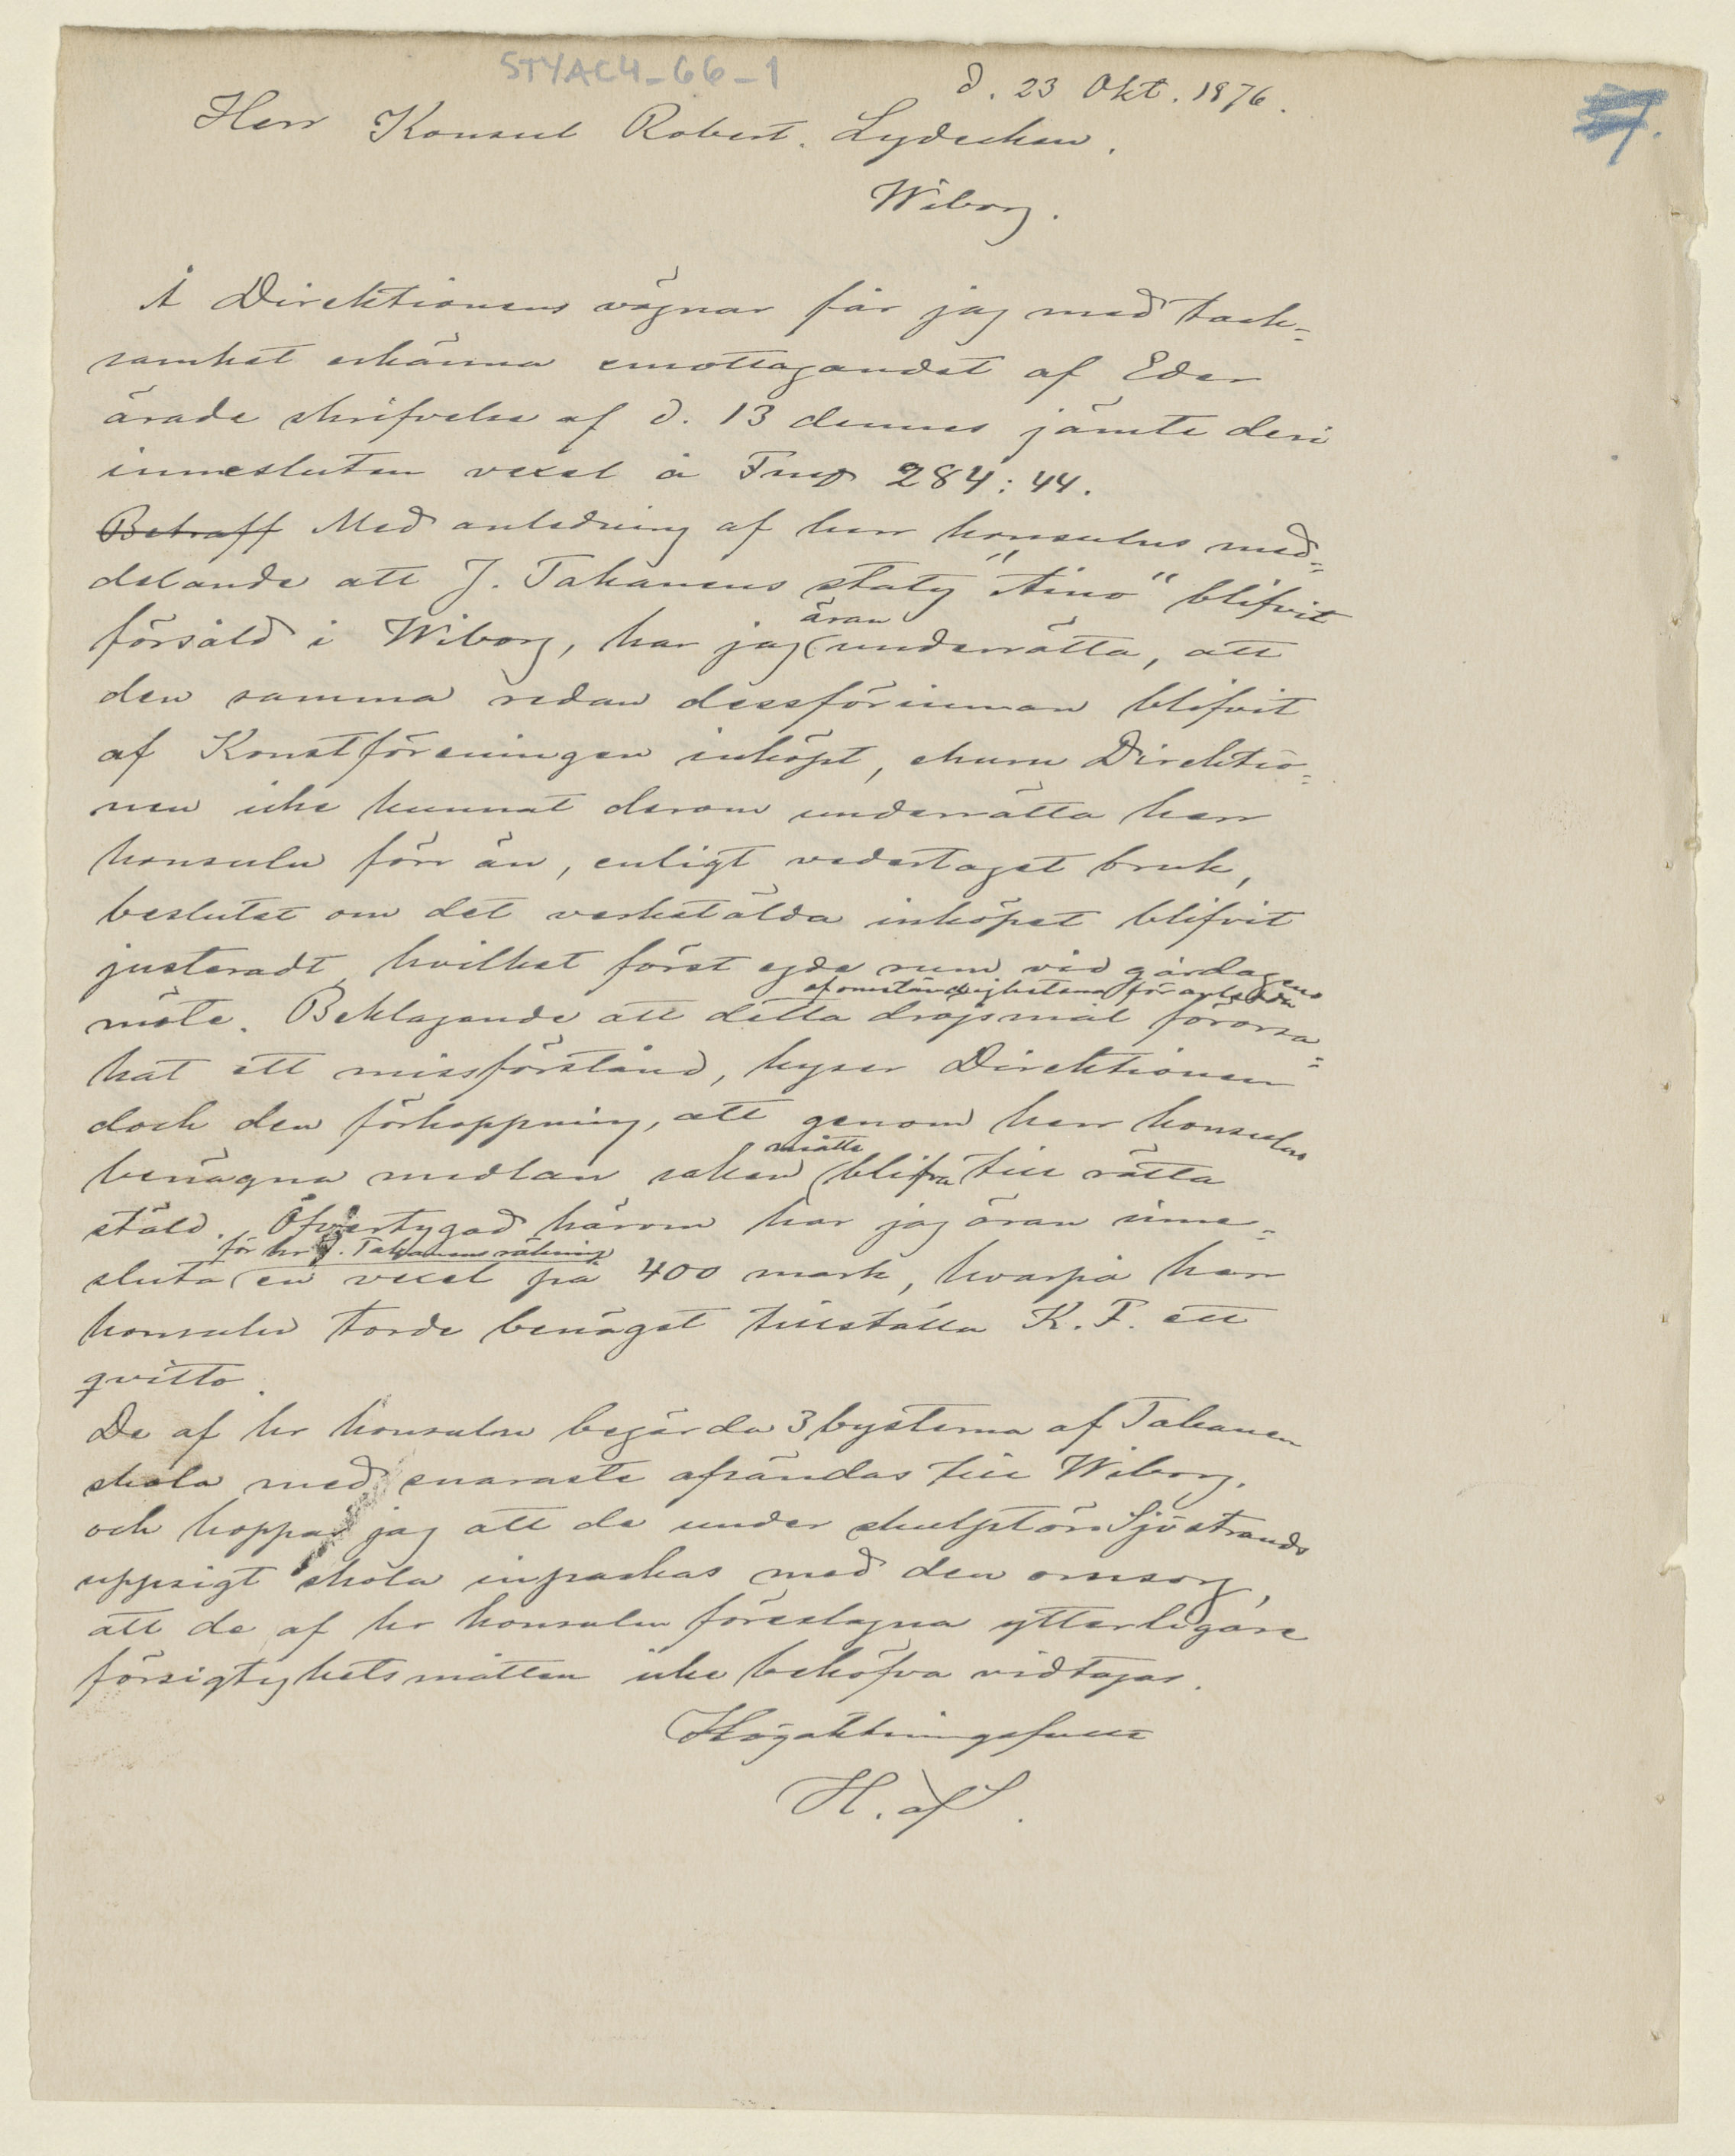 STYAC4-66-1
d. 23 Okt. 1876.
Herr Konsul Robert. Lydecken.
Wiborg.
Å Direktionens vägnar får jag med tack=
samhet erkänna emottagandet af Eder
ärade skrifvelse af d. 13 dennes jämte deri
innesluten vexel å Fmp 284:44.
Betraff Med anledning af herr konsulns med=
delande att J. Takanens staty "Aino" blifvit
försåld i Wiborg, har jag äran underrätta, att
den samma redan dessförinnan blifvit
af Konstföreningen inköpt, ehuru Direktio=
nen icke kunnat derom underrätta herr
konsuln förr än, enligt vedertaget bruk,
beslutet om det verkstälda inköpet blifvit
justeradt, hvilket först egde rum vid gårdagens
möte. Beklagande att detta af omständigheterna föranledda dröjsmål förorsa=
kat ett missförstånd, hyser Direktionen
dock den förhoppning, att genom herr konsulns
benägna medlan saken måtte blifva till rätta
stäld. Öfvertygad härom har jag äran inne=
sluta för hr J. Takanens räkning en vexel på 400 mark, hvarpå herr
konsuln torde benäget tillställa K. F. ett
qvitto.
De af hr konsuln begärda 3 bysterna af Takanen
skola med snaraste afsändas till Wiborg.
och hoppas jag att de under skulptör Sjöstrands
uppsigt skola inpackas med den omsorg,
att de af hr konsuln föreslagna ytterligare
försigtighetsmåtten icke behöfva vidtagas.
Högaktningsfullt
H. af S.